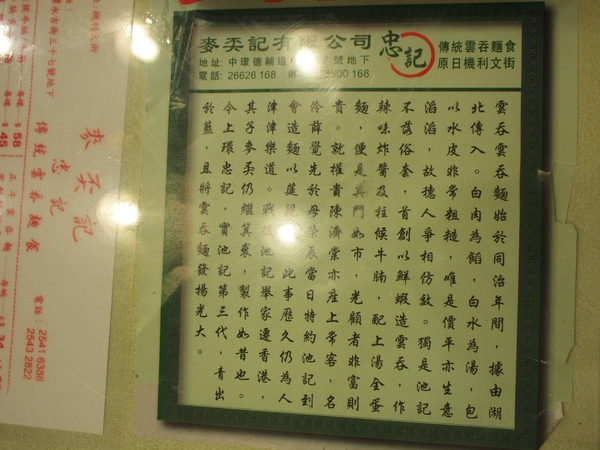 麥奀記有限公司
忠記
傳統雲吞麵食
原日機利文街
地址: 中環德輔道
號地下
電話: 26626 168
300 168
雲吞雲吞麵始於同治年間，據由湖
北傳入。白肉為餡，白水為湯，包
以水皮非常粗糙，唯是價平亦生意
滔滔，故穗人爭相仿效。獨是池記
不落俗套，首創以鮮蝦造雲吞，作
辣味炸醬及柱侯牛腩，配上湯全蛋
麵，便是其門如市，光顧者非富則
貴。就權貴陳濟棠亦座上常客，名
伶薛覺先於母榮辰當日特約池記到
會造麵以莚
此事歷久仍為人
津津樂道。戰後池記舉家遷香港，
其子麥奀仍繼其裘，製作如昔也。
今上環忠記，實池記第三代，青出
於藍，且將雲吞麵發揚光大。
永吉街三十七號地下
麥奀記
忠記
傳統雲吞麵食
電話：2541 6388
2543 2822
$ 58
$ 45